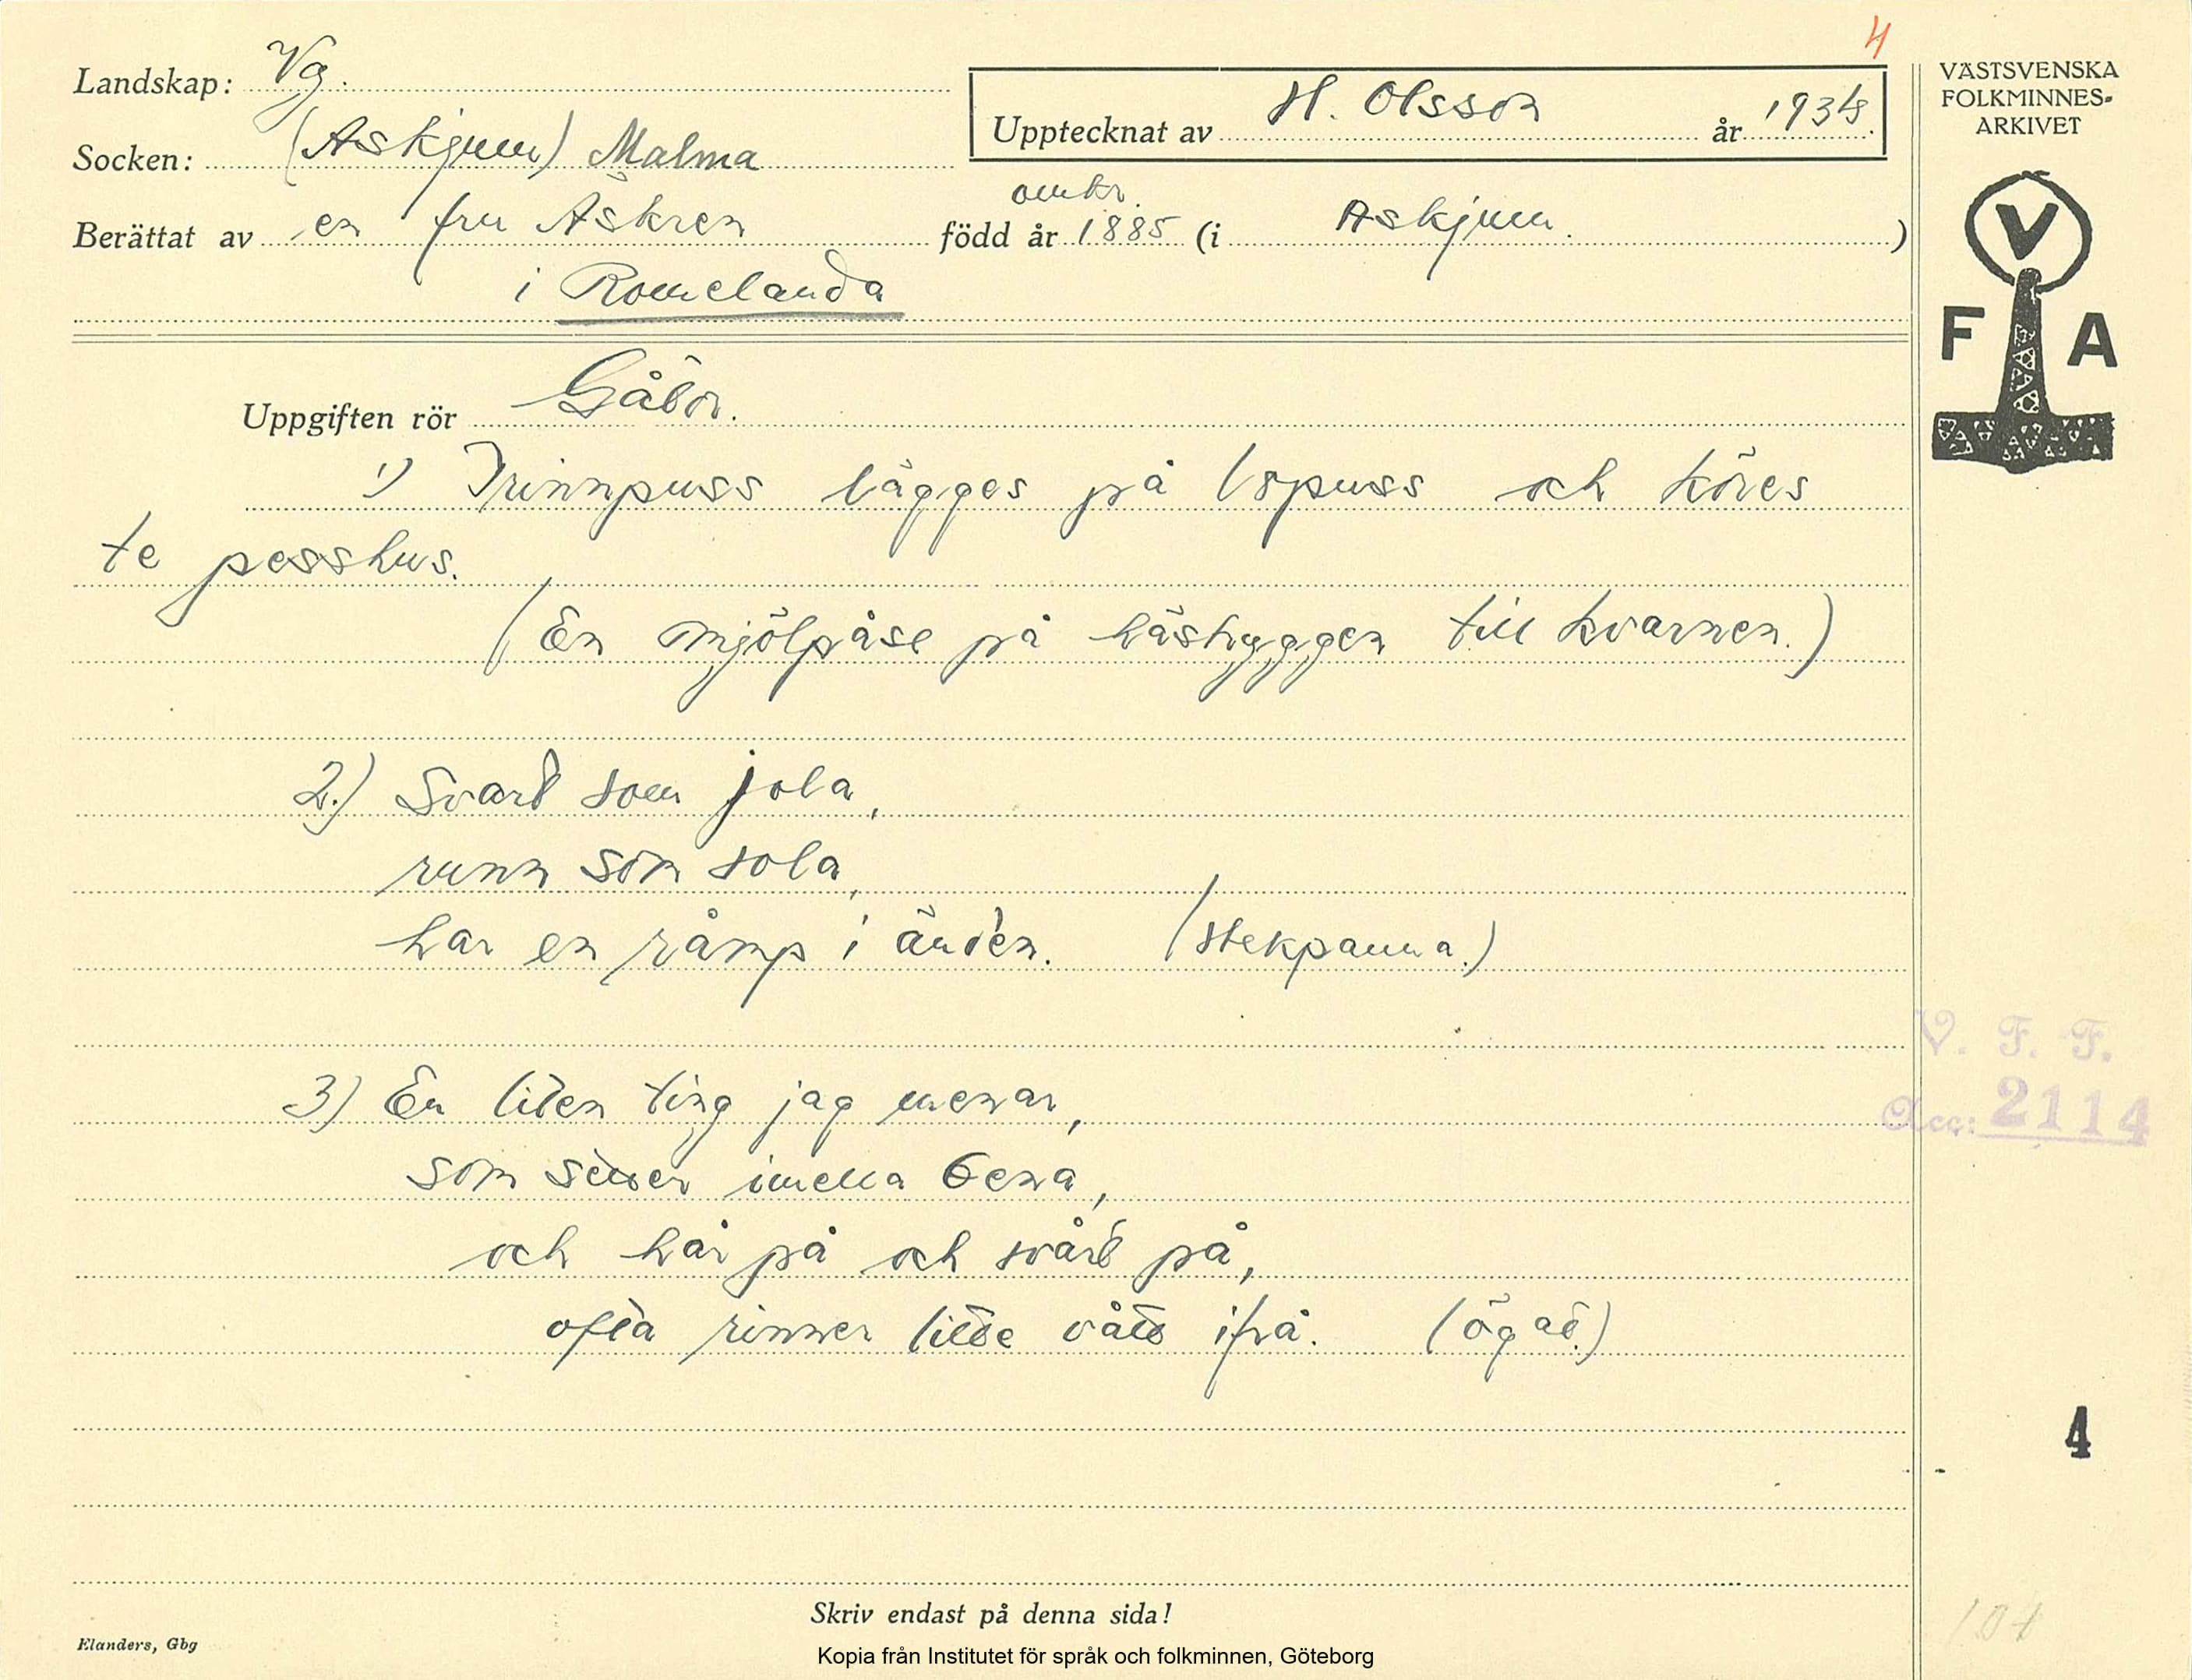 4
Landskap: Vg.
Socken: (Askjum) Malma
Upptecknat av H. Olsson år 1934.
Berättat av en fru Äskren född år omkr. 1885 (i Askjum. )
i Romelanda
VÄSTSVENSKA
FOLKMINNES-
ARKIVET
V
F A
Uppgiften rör Gåtor.
1) Trinnpuss lägges på lspuss och köres
te pesshus.
(En mjölpåse på hästryggen till kvarnen.)
2.) Svart som jola,
runn som sola,
har en råmp i änden. (stekpanna.)
3) En liten ting jag menar,
som sitter imella bena,
och hår på och svårt på,
ofta rinner litte vått ifrå. (ögat.)
V. F. F.
Acc: 2114
4
Skriv endast på denna sida!
Elanders, Gbg
Kopia från Institutet för språk och folkminnen, Göteborg